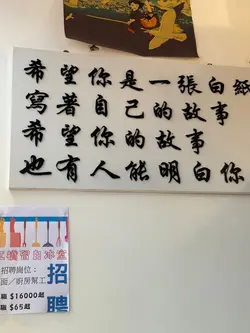 希望你是一張白紙
寫著自己的故事
希望你的故事
也有人能明白你
招聘崗位：
面／廚房幫工
$16000起
$65起
招聘